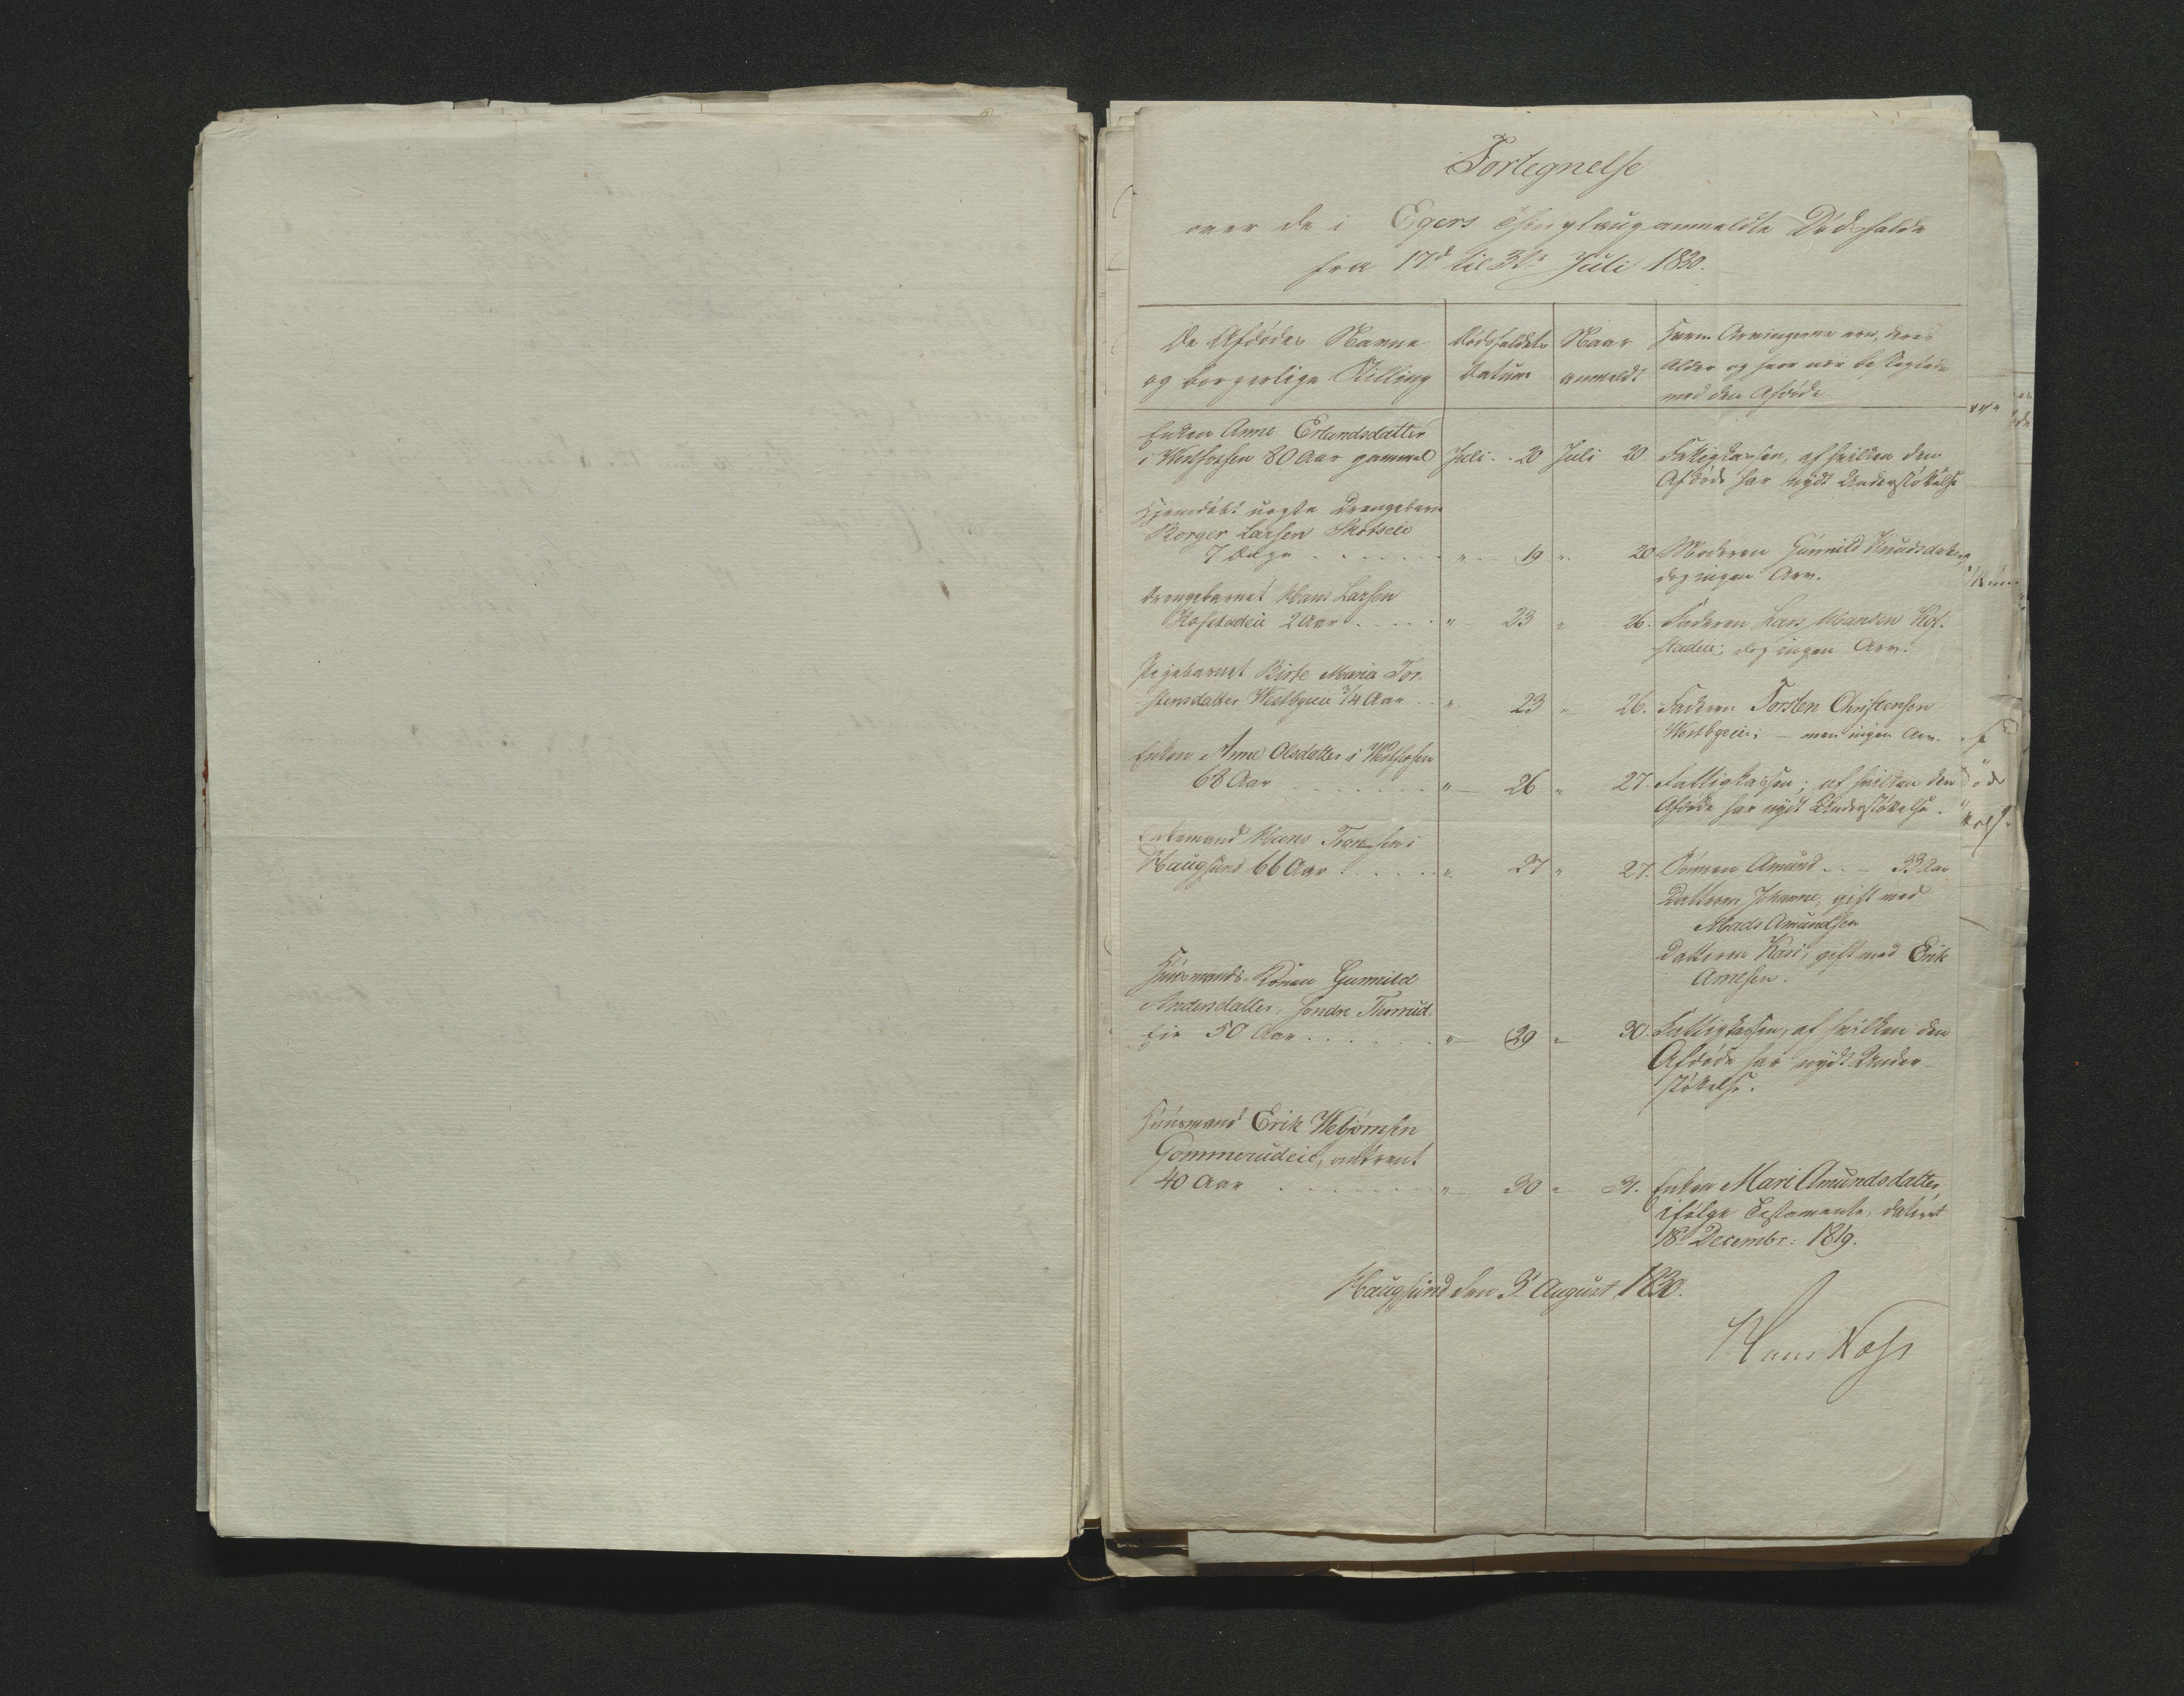 Fortegnelse
over de i Egers Thinglaug anmeldte Dødsfalde
fra 17d til 31te Juli 1830.
De Afdødes Navne
og borgerlige Stilling
Dødsfaldets
Datum
Naar
anmeldt
Hvem Arvingerne ere, deres
Alder og hvor nær beslægtede
med den Afdøde
Enken Anne Erlandsdatter
i Vestfossen 80 Aar gammel Juli 20 Juli 20. Fattigkassen, af hvilken den
Afdøde har nydt Understøttelse
Hjemdøbt uægte Drengebarn
Borger Larsen Skotseie
7 Dage " 19 " 20 Moderen Gunnild Knudsdatter,
dog ingen Arv.
Drengebarnet Hans Larsen
Hofstadeie 2 Aar " 23 " 26. Faderen Lars Hansen Hof-
stadeie; dog ingen Arv.
Pigebarnet Birte Maria Tor-
stensdatter Vestbyeie 3/4 Aar " 23 " 26. Faderen Torsten Christensen
Vestbyeie; – men ingen Arv.
Enken Anne Olsdatter i Vestfossen
68 Aar " 26 " 27. Fattigkassen; af hvilken den
Afdøde har nydt Understøttelse.
Enkemand Hans Fransen i
Haugsund 66 Aar " 27 " 27. Sønnen Amund – 33 Aar
Datteren Johanne, gift med
Mads Amundsen
Datteren Kari, gift med Erik
Arnesen.
Huusmands-Konen Gunnild
Andersdatter, søndre Thorrud
Eie 50 Aar " 29 " 30. Fattigkassen, af hvilken den
Afdøde har nydt Under-
støttelse.
Huusmand Erik Webjørnsen
Gommerudeie, omtrent
40 Aar " 30 " 31. Enken Mari Amundsdatter
ifølge Testamente, dateret
18d Decembr: 1819.
Haugsund den 3d August 1830.
Hans Næss